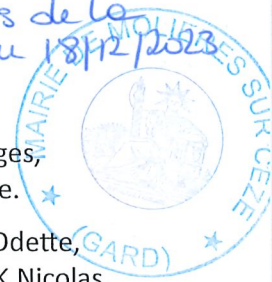 s de la
18/12/2023
MAIRIE DE MOLIERES SUR CEZE
(GARD)
ges,
e.
Odette,
X Nicolas